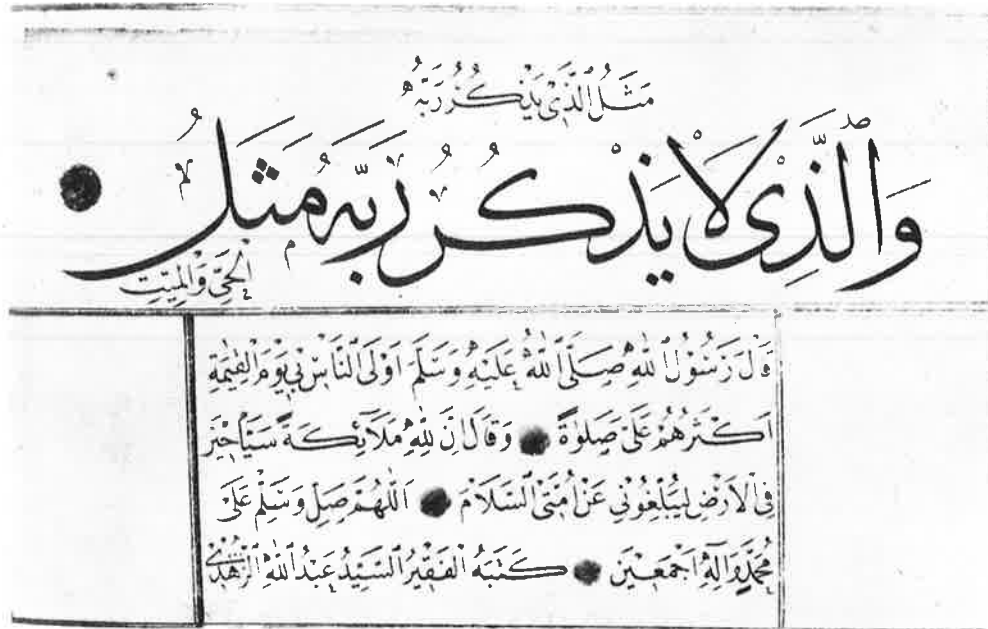 مَثَلُ الَّذِي يَذْكُرُ رَبَّهُ
وَالَّذِي لَا يَذْكُرُ رَبَّهُ مَثَلُ
الْحَيِّ وَالْمَيِّتِ
قَالَ رَسُولُ اللهِ صَلَّى اللهُ عَلَيْهِ وَسَلَّمَ اَوْلَى النَّاسِ بِي يَوْمَ الْقِيٰمَةِ
اَكْثَرُهُمْ عَلَيَّ صَلٰوةً ● وَقَالَ اِنَّ لِلّٰهِ مَلَآئِكَةً سَيَّاحِينَ
فِي الْاَرْضِ لِيُبَلِّغُونِي عَنْ اُمَّتِي السَّلَامَ ● اَللّٰهُمَّ صَلِّ وَسَلِّمْ عَلَى
مُحَمَّدٍ وَاٰلِهِ اَجْمَعِينَ ● كَتَبَهُ الْفَقِيرُ السَّيِّدُ عَبْدُ اللهِ الزُّهْدِي